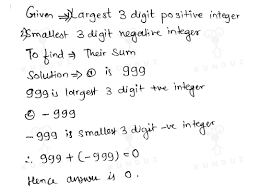 Given ⇒ ① Largest 3 digit positive integer
② Smallest 3 digit negative integer
To find ⇒ Their Sum
Solution ⇒ ① is 999
999 is largest 3 digit +ve integer
② - 999
- 999 is smallest 3 digit -ve integer
∴ 999 + (-999) = 0
Hence answer is 0.